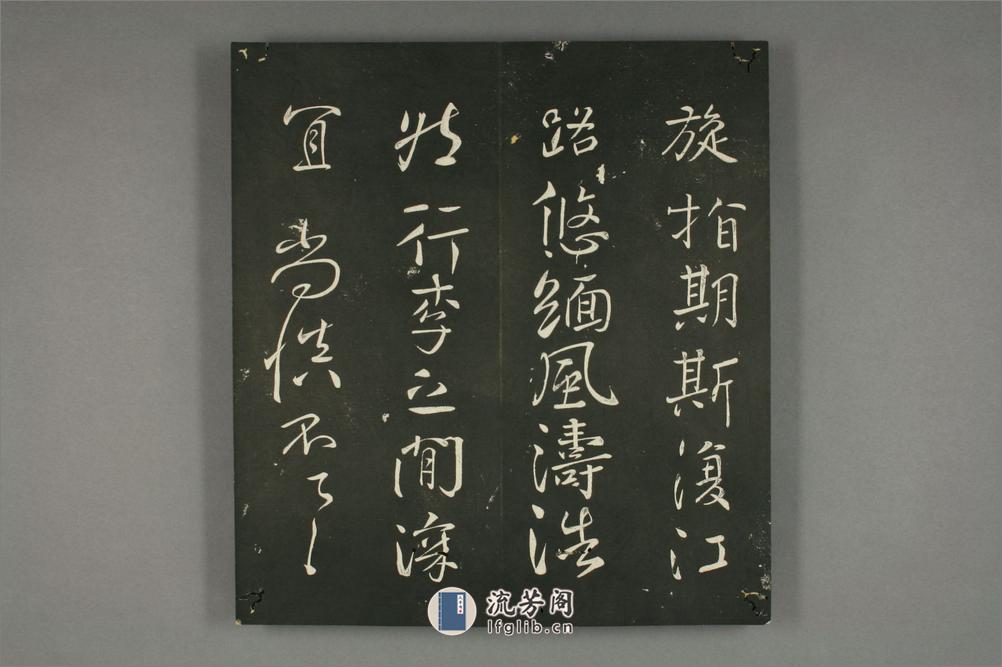 旋指期斯復江
路悠緬風濤浩
然行李之間深
宜尚慎不具
流芳阁
lfglib.cn